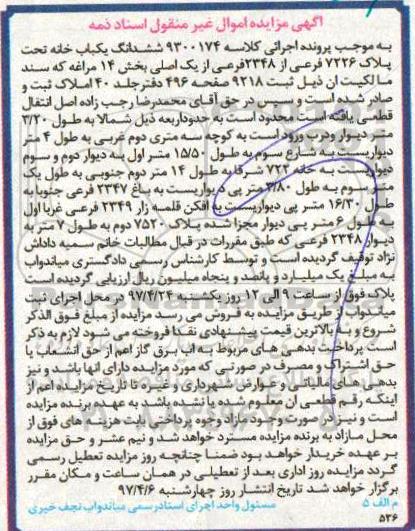 آگهی مزایده اموال غیر منقول اسناد ذمه
به موجب پرونده اجرائی کلاسه ۹۳۰۰۱۷۴ ششدانگ یکباب خانه تحت
پلاک ۷۲۲۶ فرعی از ۲۳۴۸ فرعی از یک اصلی بخش ۱۴ مراغه که سند
مالکیت آن ذیل ثبت ۹۲۱۸ صفحه ۴۹۶ دفتر جلد ۴۰ املاک ثبت و
صادر شده است و سپس در حق آقای محمدرضا رجب زاده اصل انتقال
قطعی یافته است محدود است به حدود اربعه ذیل شمالا به طول ۳/۲۰
متر دیوار ودرب ورود است به کوچه سه متری دوم غربی به طول ۴ متر
دیواریست به شارع سوم به طول ۱۵/۵۰ متر اول به دیوار دوم و سوم
دیواریست به خانه ۷۲۲ شرقا به طول ۱۴ متر دوم جنوبی به طول یک
متر سوم به طول ۳/۸۰ متر پی دیواریست به باغ ۲۳۴۷ فرعی جنوبا به
طول ۱۶/۳۰ متر پی دیواریست به افکن قلمه زار ۲۳۴۹ فرعی غربا اول
طول ۶ متر پی دیوار مجزا شده پلاک ۷۵۲۰ دوم به طول ۷ متر به
دیوار ۲۳۴۸ فرعی که طبق مقررات در قبال مطالبات خانم سمیه داداش
نژاد توقیف گردیده است و توسط کارشناس رسمی دادگستری میاندواب
به مبلغ یک میلیارد و پانصد و پنجاه میلیون ریال ارزیابی گردیده است
پلاک فوق از ساعت ۹ الی ۱۲ روز یکشنبه ۹۷/۴/۲۴ در محل اجرای ثبت
میاندواب از طریق مزایده به فروش می رسد مزایده از مبلغ فوق الذکر
شروع و به بالاترین قیمت پیشنهادی نقدا فروخته می شود لازم به ذکر
است پرداخت بدهی های مربوط به آب برق گاز اعم از حق انشعاب یا
حق اشتراک و مصرف در صورتی که مورد مزایده دارای آنها باشد و نیز
بدهی های مالیاتی و عوارض شهرداری و غیره تا تاریخ مزایده اعم از
اینکه رقم قطعی آن معلوم شده یا نشده باشد به عهده برنده مزایده
است و نیز در صورت وجود مازاد وجوه پرداختی بابت هزینه های فوق از
محل مازاد به برنده مزایده مسترد خواهد شد و نیم عشر و حق مزایده
بر عهده خریدار خواهد بود ضمنا چنانچه روز مزایده تعطیل رسمی
گردد مزایده روز اداری بعد از تعطیلی در همان ساعت و مکان مقرر
برگزار خواهد شد تاریخ انتشار روز چهارشنبه ۹۷/۴/۶
م الف ۵ مسئول واحد اجرای اسناد رسمی میاندواب نجف خیری
۵۳۶